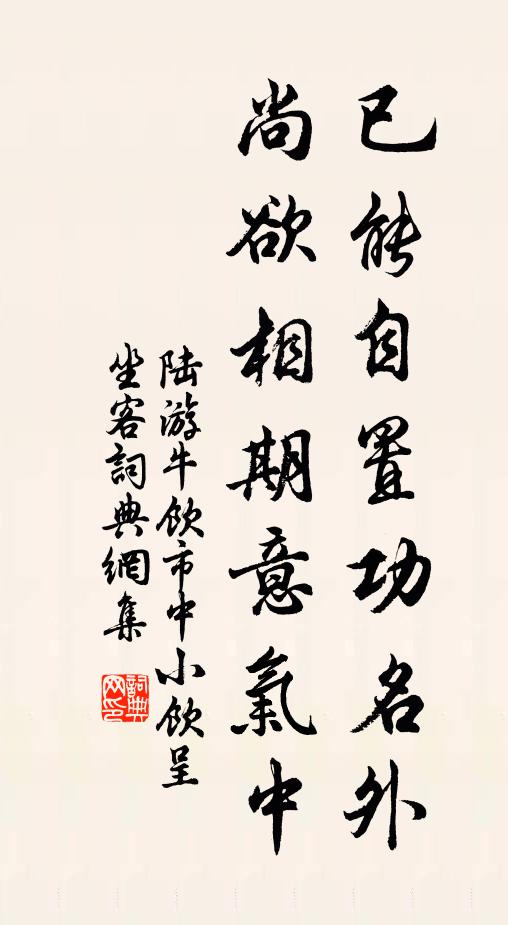 已能自置功名外
尚欲相期意氣中
陸游牛飲市中小飲呈
坐客詞典網集
詞典
网印